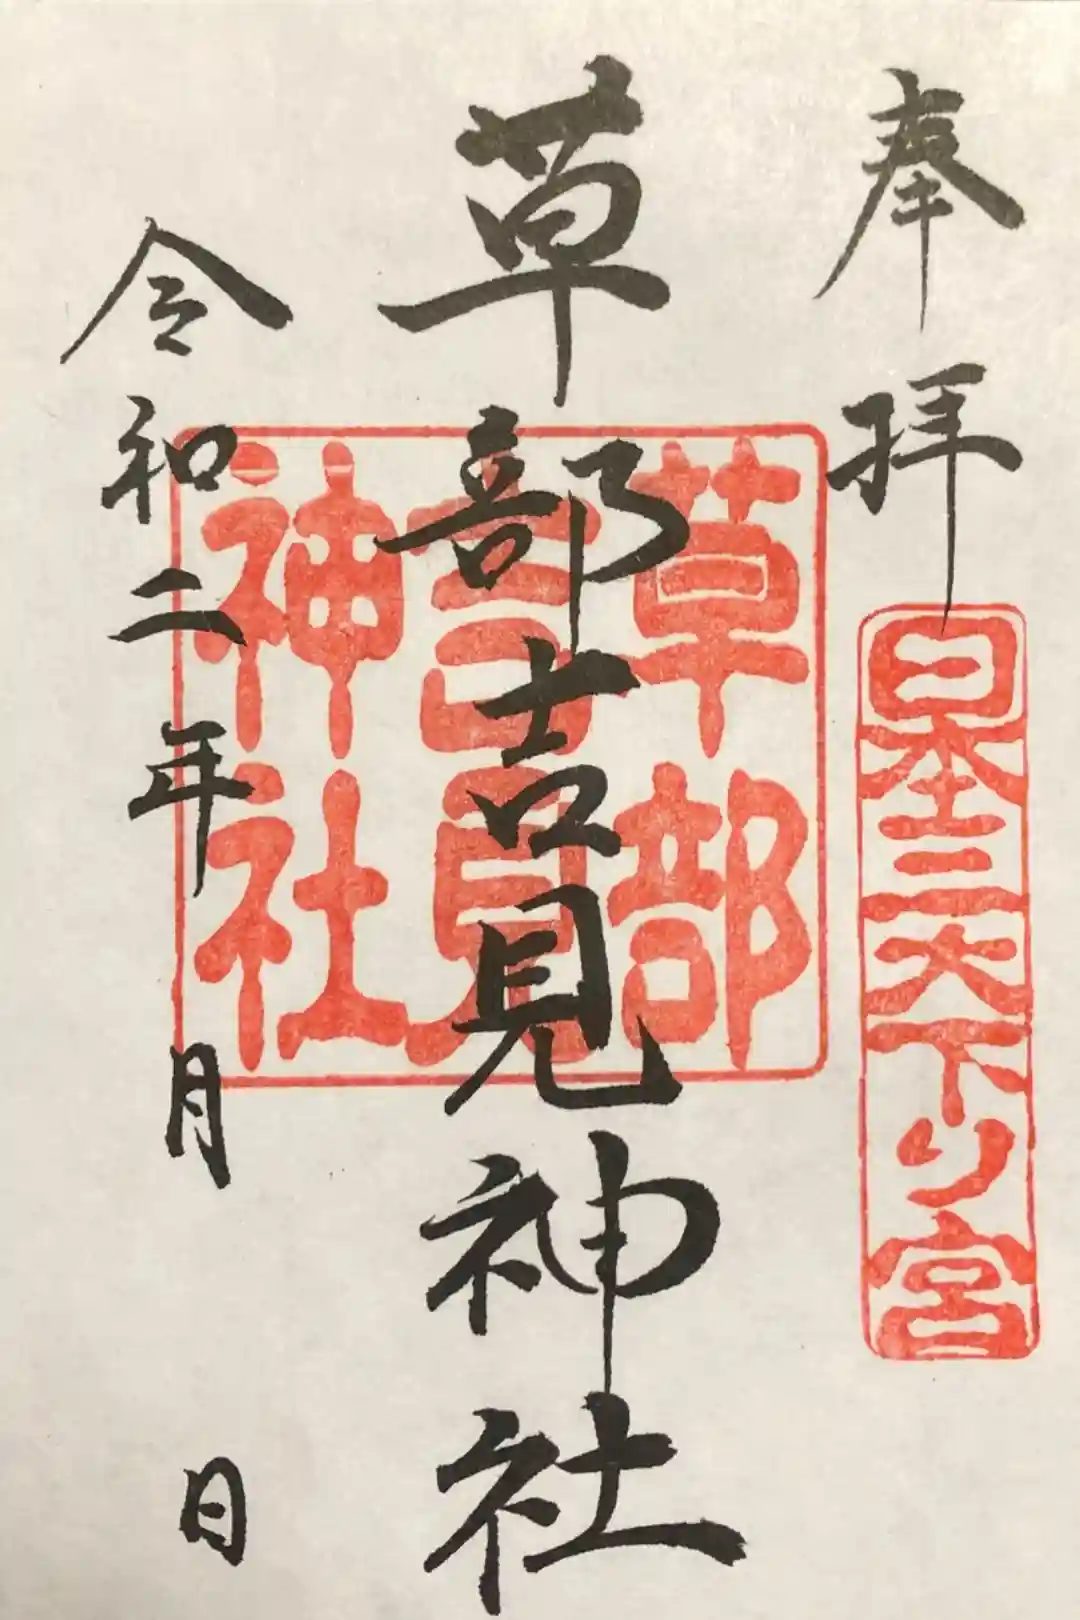 奉拝
日本三大下り宮
草部吉見神社
草部
吉見
神社
令和二年 月 日